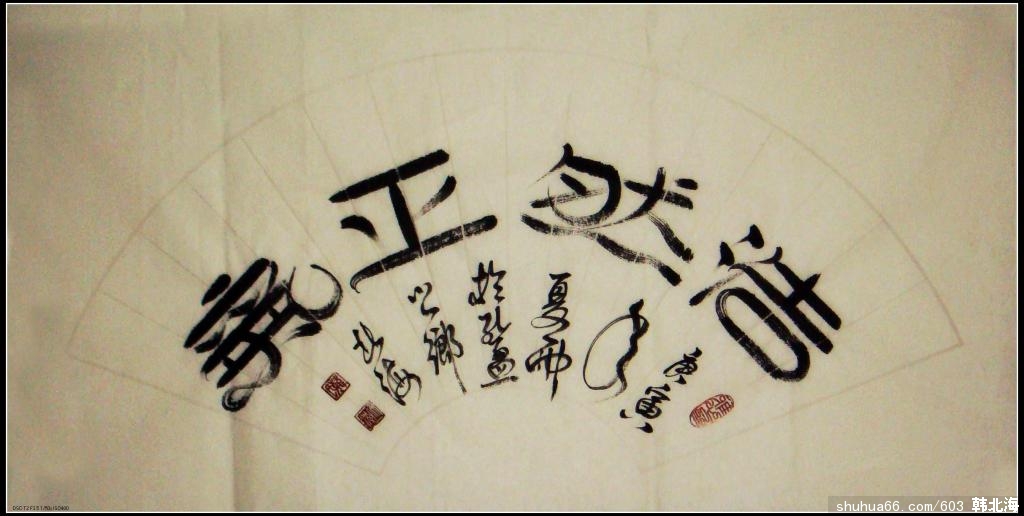 浩然正氣
庚寅
年
夏雨
於孔孟
之鄉
北海
shuhua66.com/603 韩北海